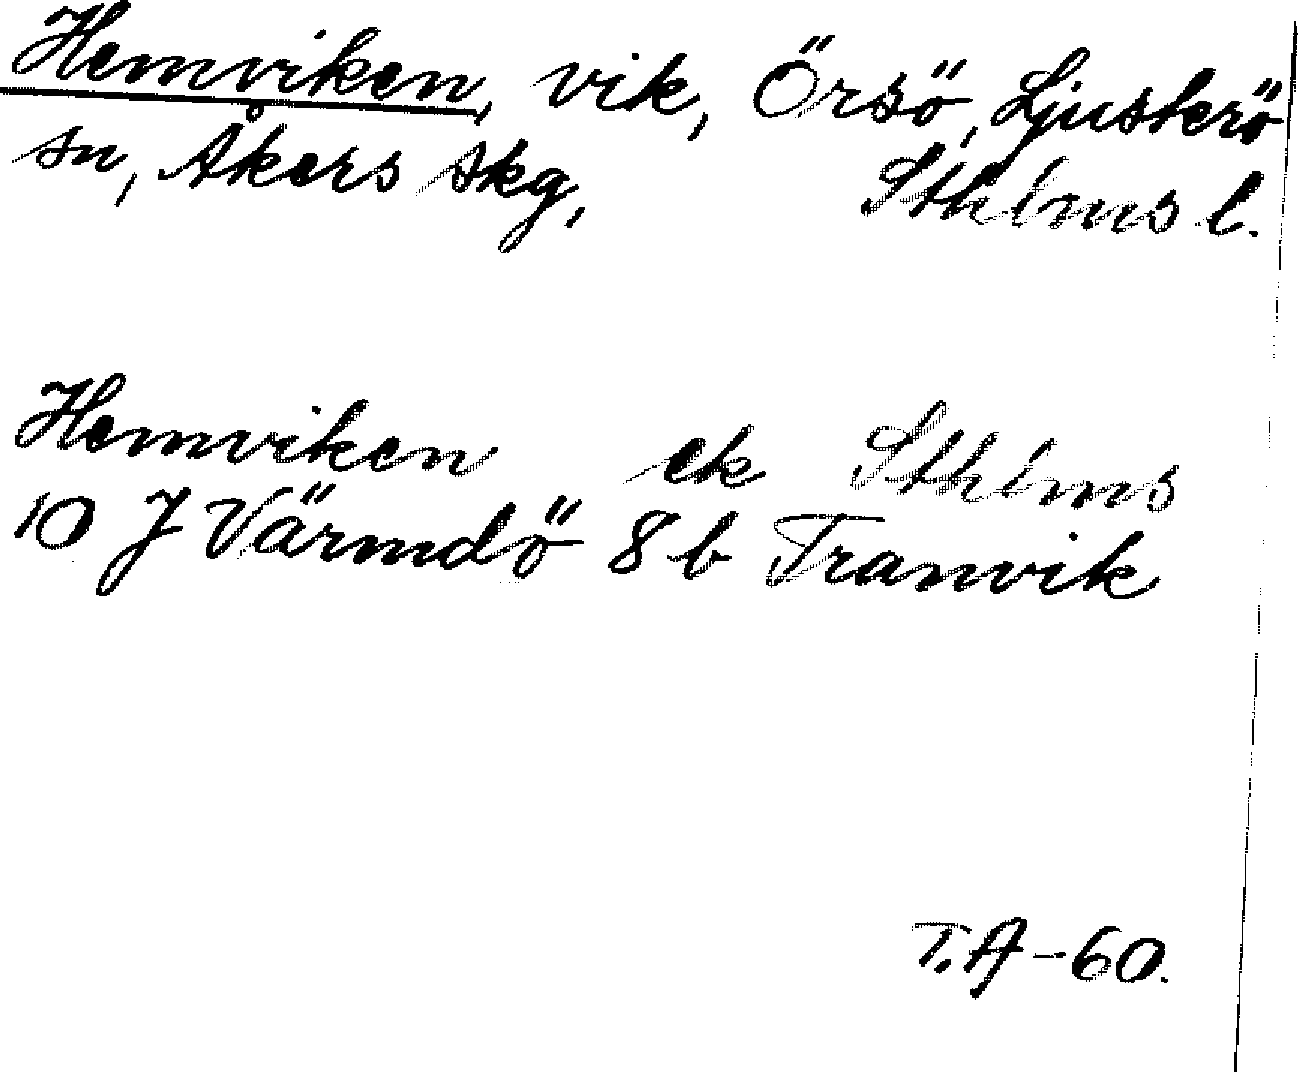 Hemviken, vik, Örsö, Ljusterö
sn, Åkers skg, Sthlms l.
Hemviken ek Sthlms
10 J Värmdö 8 b Tranvik
T.A-60.